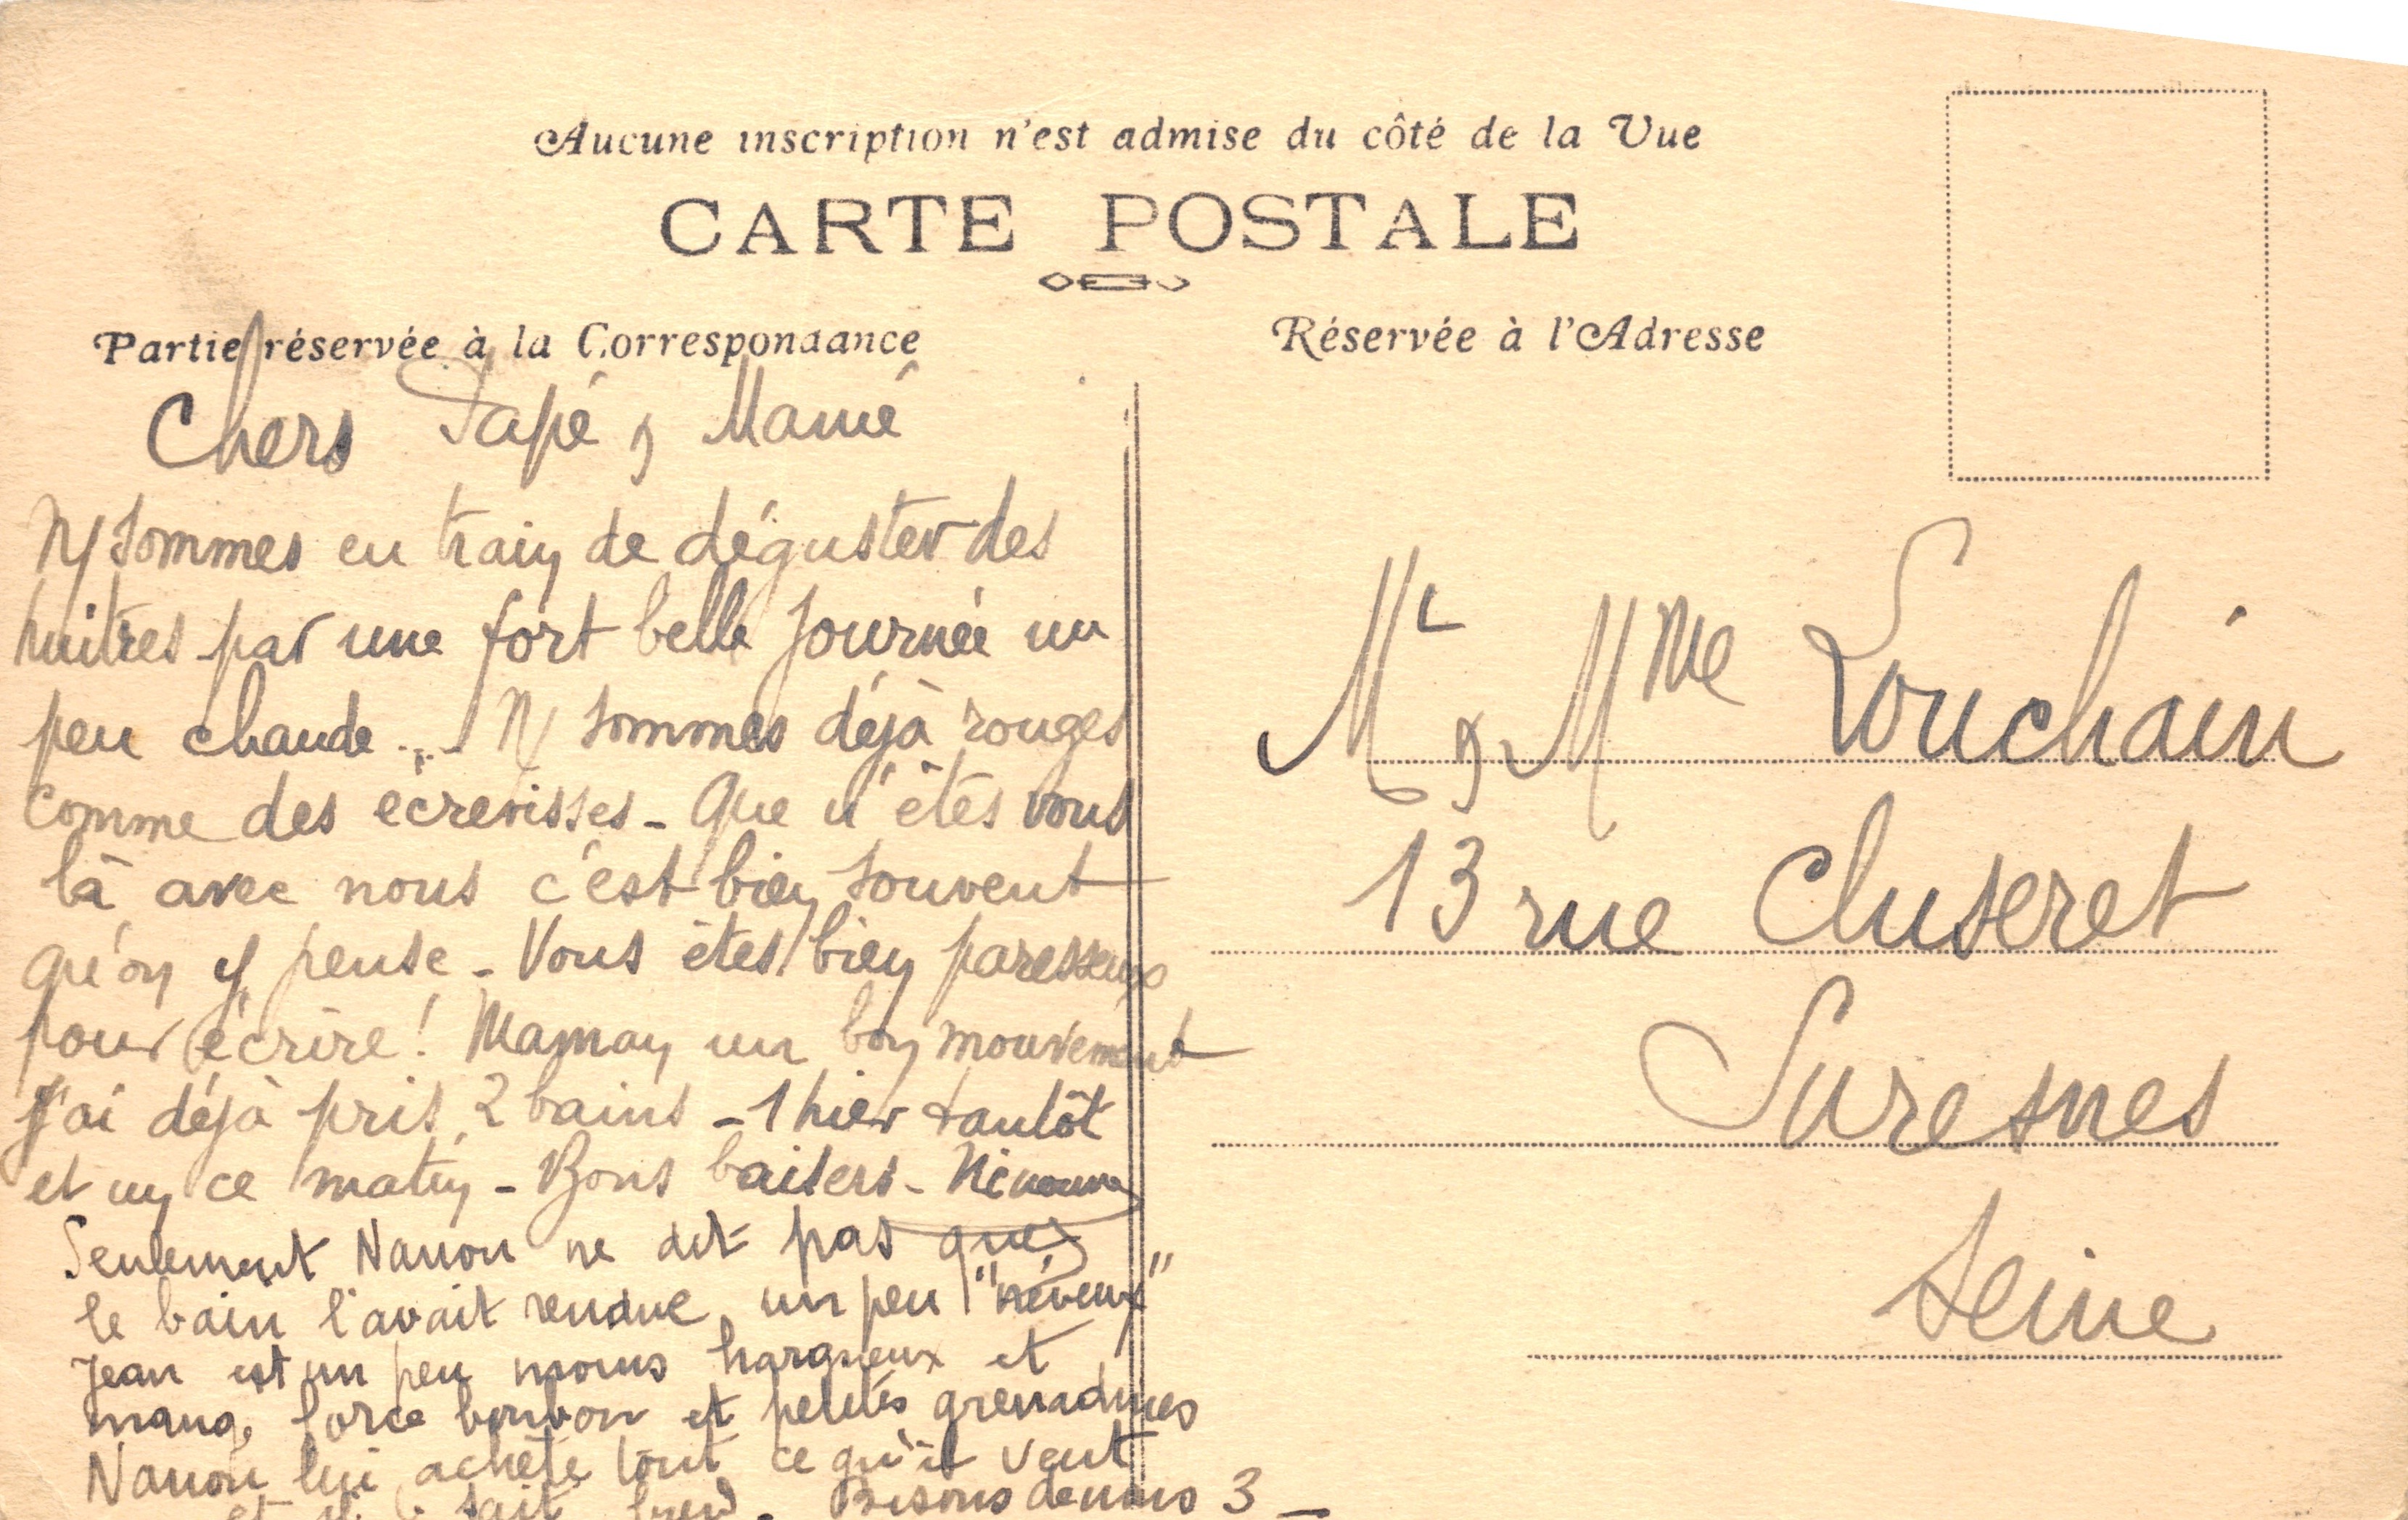 Aucune inscription n'est admise du côté de la Vue
CARTE POSTALE
Partie réservée à la Correspondance
Réservée à l'Adresse
Chers Papé & Mamé
N/ sommes en train de déguster des
huitres par une fort belle journée un
peu chaude... N/ sommes déjà rouges
comme des écrevisses - Que n'êtes vous
là avec nous c'est bien souvent
qu'on y pense - Vous êtes bien paresseux
pour écrire! Maman un bon mouvement
J'ai déjà pris 2 bains - 1 hier tantôt
et un ce matin - Bons baisers -
Seulement Nanon ne dit pas que
le bain l'avait rendue un peu "néveux"
Jean est un peu moins hargneux et
mange force bonbon et petites grenadines
Nanon lui achète tout ce qu'il veut
et il sait bien. Bisons de nous 3 -
Mr & Mme Louchain
13 rue Cluseret
Suresnes
Seine